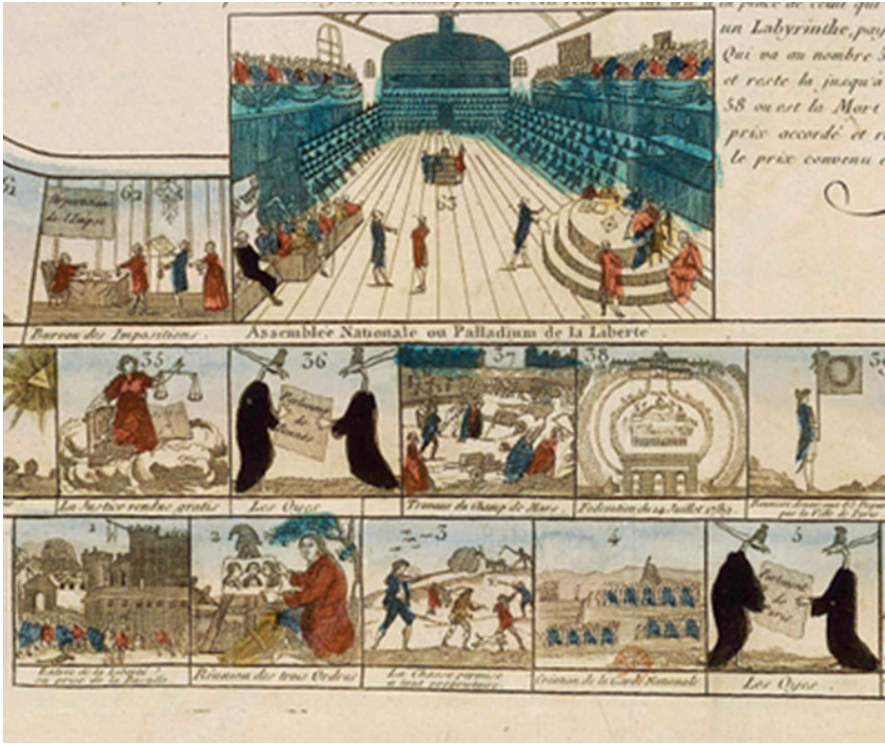 la place de celui qui
un Labyrinthe, pay
Qui va au nombre 5
et reste la jusqu'a
58 ou est la Mort
prix accordé et r
le prix convenu
61
62
Repartition
de l'Impot
63
Bureau des Impositions.
Assemblée Nationale ou Palladium de la Liberte
35
36
Parlement
de
37
38
La Justice rendue gratis
Les Oyes
Travaux du Champ de Mars.
Fédération du 14 Juillet 1789.
par la Ville de Paris
1
2
3
4
5
Parlement
de
Paris
Entrée de la Liberté
ou prise de la Bastille
Réunion des trois Ordres
La Chasse permise
a tout propriétaire
Création de la Garde Nationale
Les Oyes.